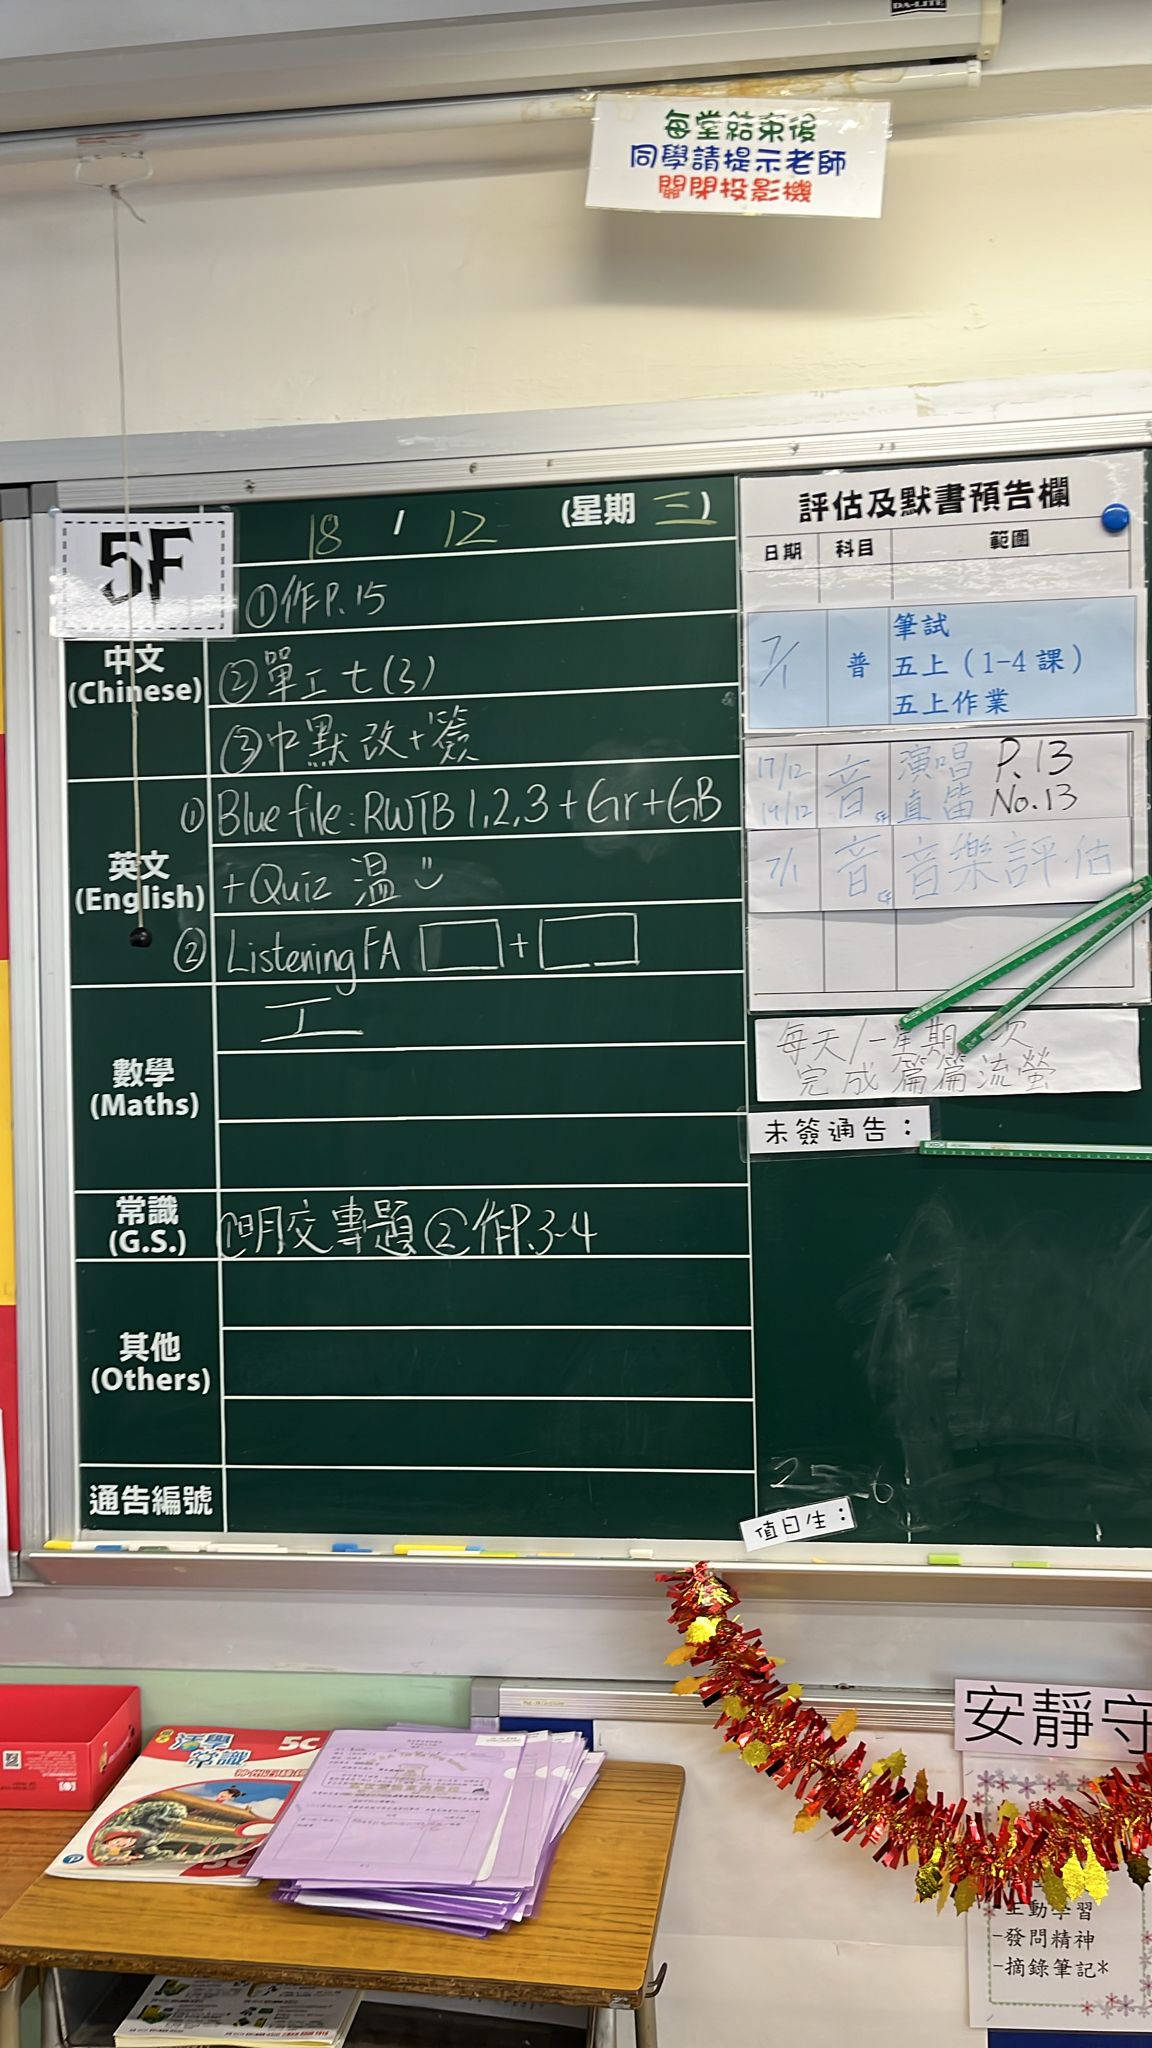 DA-LITE
每堂結束後
同學請提示老師
關閉投影機
5F
18 / 12 (星期 三)
①作P.15
中文
(Chinese)
②單工七(3)
③中默改+簽
英文
(English)
① Blue file: RWTB 1,2,3 + Gr + GB
+ Quiz 溫
② Listening FA +
數學
(Maths)
工
常識
(G.S.)
①明交專題 ②作P.3-4
其他
(Others)
通告編號
評估及默書預告欄
日期 科目 範圍
7/1 普 筆試
五上(1-4課)
五上作業
17/12 音 演唱 P.13
19/12 直笛 No.13
7/1 音 音樂評估
每天/一星期 次
完成篇篇流螢
未簽通告：
值日生：
活學
常識
5C
安靜守
-主動學習
-發問精神
-摘錄筆記*